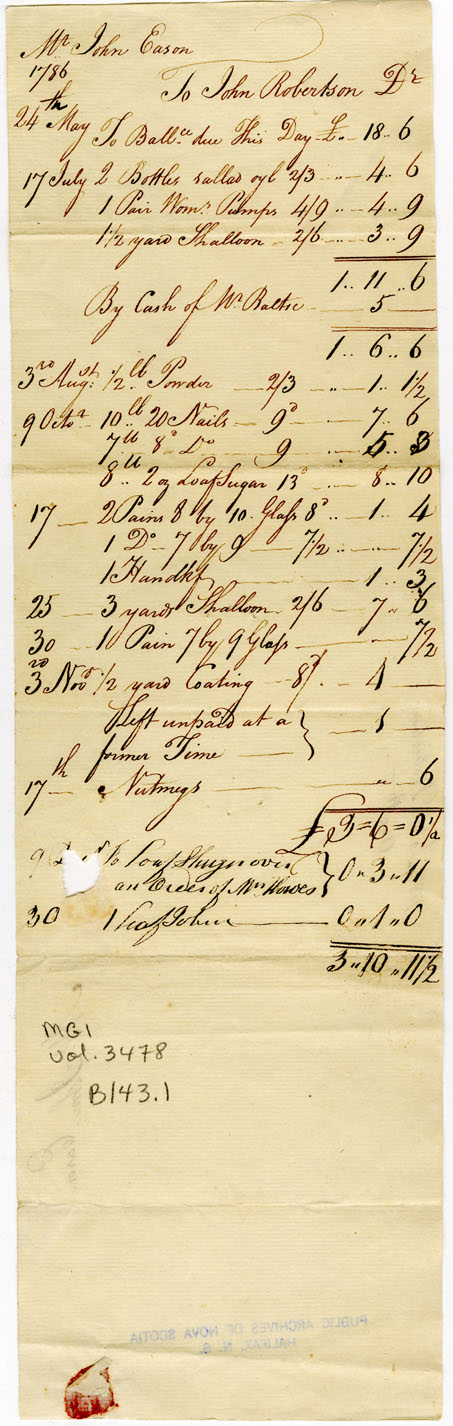 Mr John Eason
1786
To John Robertson Dr
24th May To Ballce due This Day £ .. 18 .. 6
17 July 2 Bottles sallad oyl 2/3 .. 4 .. 6
1 Pair Woms Pumps 4/9 .. 4 .. 9
1 1/2 yard Shalloon 2/6 .. 3 .. 9
1 .. 11 .. 6
By Cash of Mr 5
1 .. 6 .. 6
3rd Augst: 1/2 lb Powder 2/3 .. 1 .. 1 1/2
9 Octor 10 lb 20 Nails 9d 7 .. 6
7 lb 8d Do 9 5 .. 3
8 lb .. 2 oz Loaf Sugar 13d 8 .. 10
17 2 Pains 8 by 10 Glass 8d 1 .. 4
1 Do 7 by 9 7 1/2 .. 7 1/2
1 Handkf 1 .. 3
25 3 yards Shalloon 2/6 7 .. 6
30 1 Pain 7 by 9 Glass 7 1/2
3rd Novr 1/2 yard Coating 8/ 4
Left unpaid at a 1
former Time
17th Nutmegs .. 6
£ 3 = 6 = 0 1/2
9 To Loaf Shugr
an Order of Mrs Howes 0 .. 3 .. 11
30 1 0 .. 1 .. 0
3 .. 10 .. 11 1/2
MG1
Vol. 3478
B143.1
PUBLIC ARCHIVES OF NOVA SCOTIA
HALIFAX, N. S.